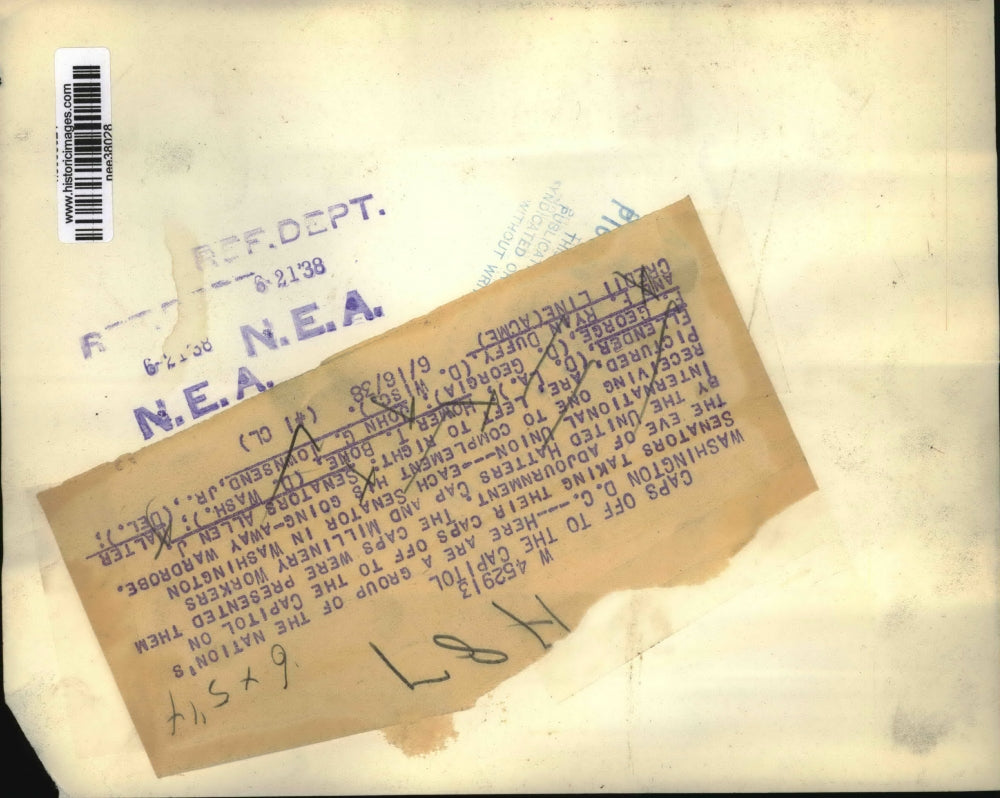 www.historicimages.com
nee38028
REF. DEPT.
6-21'38
N.E.A.
N.E.A.
WITHOUT
487
W 452913
CAPS OFF TO THE CAPITOL
WASHINGTON D.C.---HERE ARE A GROUP OF THE NATION'S
SENATORS TAKING THEIR CAPS OFF TO THE CAPITOL ON
THE EVE OF ADJOURNMENT THE CAPS WERE PRESENTED THEM
BY THE UNITED HATTERS CAP AND MILLINERY WORKERS
INTERNATIONAL UNION---EACH SENATOR IN WASHINGTON
RECEIVING ONE TO COMPLEMENT HIS GOING-AWAY WARDROBE.
PICTURED, ARE, LEFT TO RIGHT: SENATORS ALLEN J.
ELLENDER, (D. LA.); HOMER T. BONE (D. WASH.); WALTER
F. GEORGE, (D. GEORGIA); JOHN G. TOWNSEND, JR., (DEL.);
AND F. RYAN DUFFY, (D. WISC.).
CREDIT LINE (ACME) 6/16/38 (#1 CL)